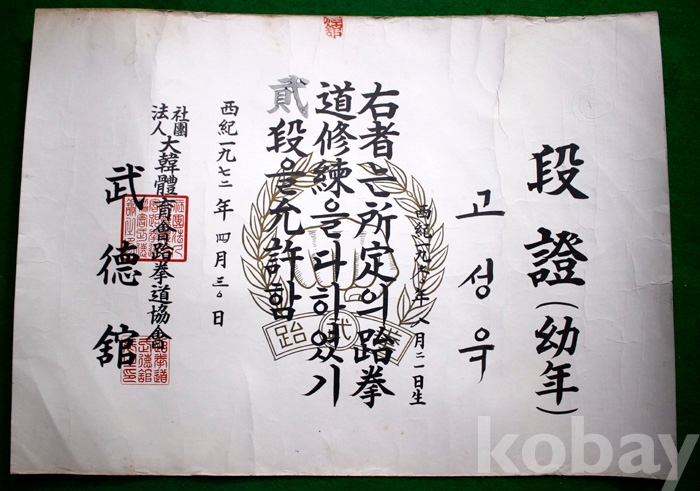 段證(幼年)
고성욱
西紀一九六〇年八月二一日生
右者는所定의跆拳
道修練을다하였기
貳段을允許함
西紀一九七二年四月三〇日
社團
法人大韓體育會跆拳道協會
武德舘
kobay